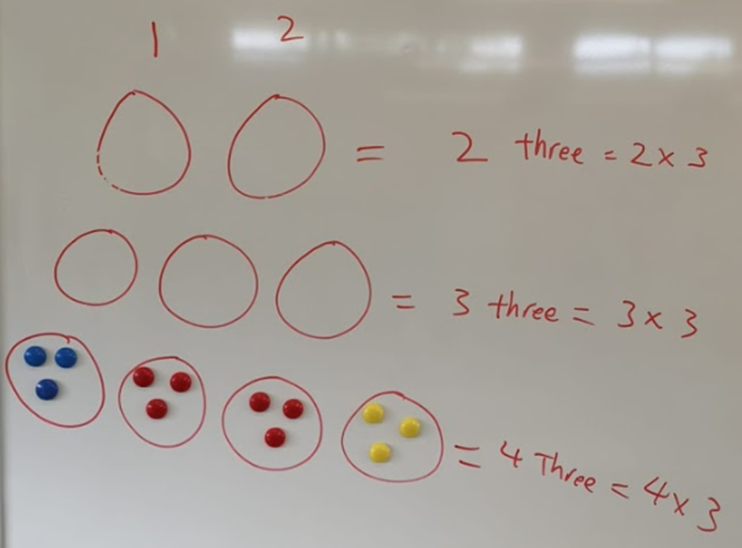 1 2
= 2 three = 2 x 3
= 3 three = 3 x 3
= 4 Three = 4 x 3